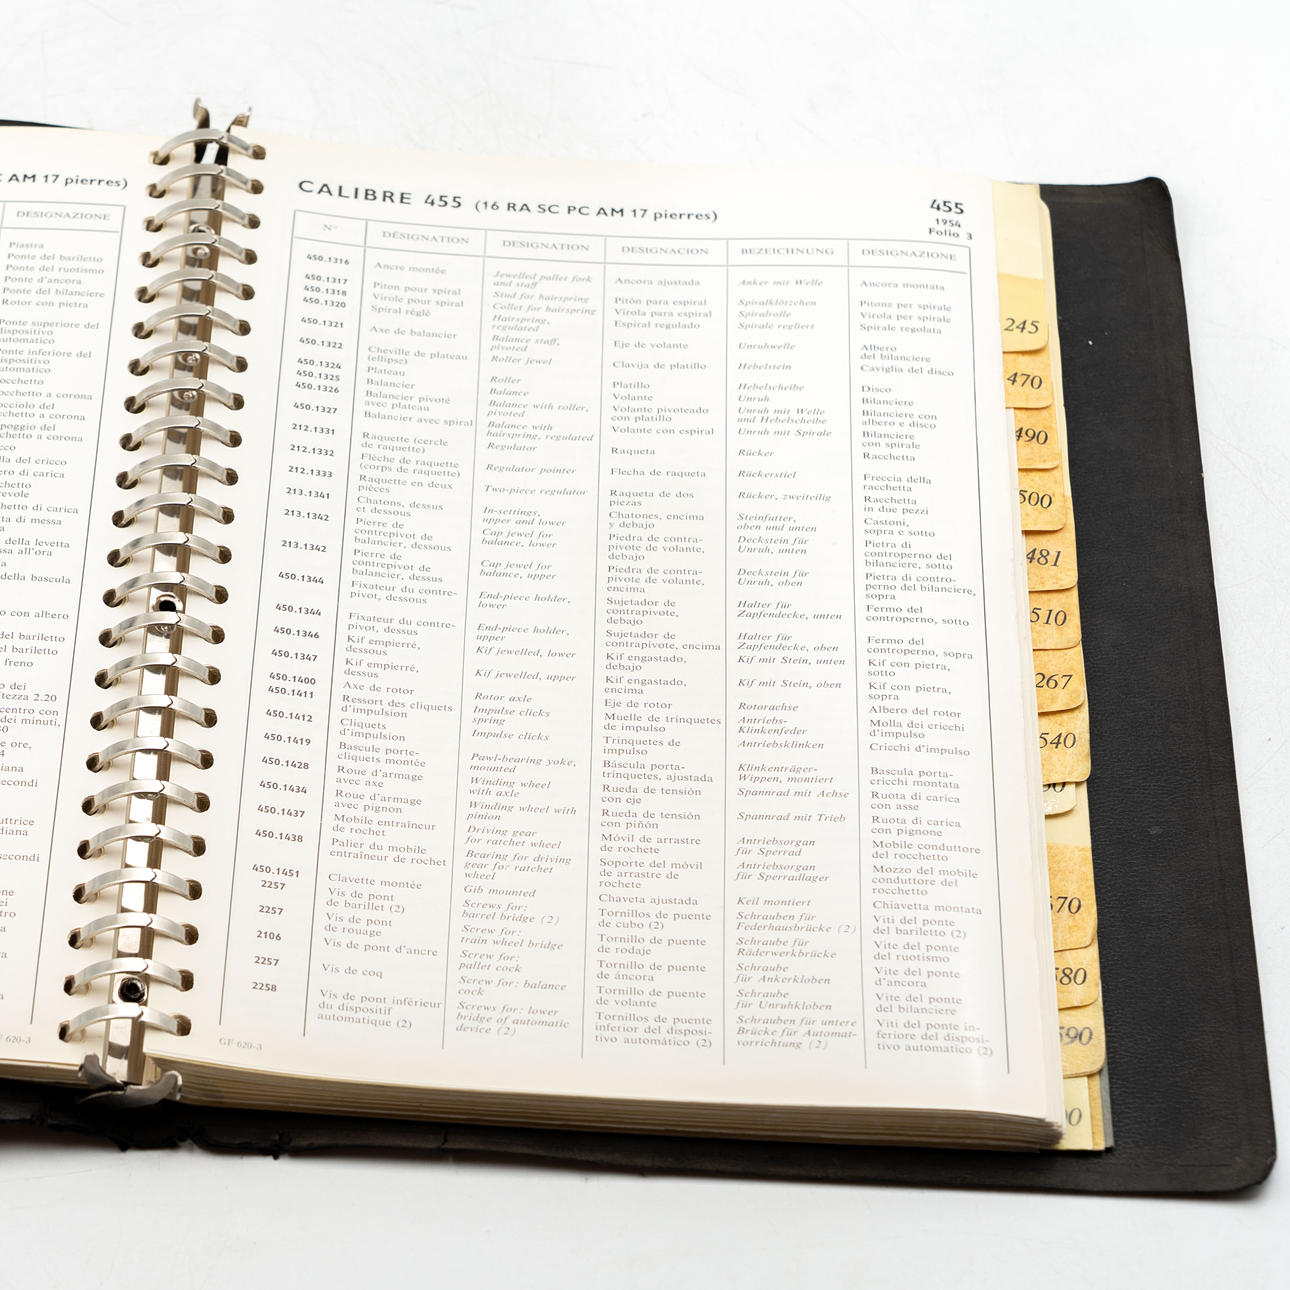 AM 17 pierres)
DESIGNAZIONE
Piastra
Ponte del bariletto
Ponte del ruotismo
Ponte d'ancora
Ponte del bilanciere
Rotor con pietra
Ponte superiore del
dispositivo
automatico
Ponte inferiore del
CALIBRE 455 (16 RA SC PC AM 17 pierres)
455
1954
Folio 3
N°
450.1316
450.1317
450.1318
450.1320
450.1321
450.1322
450.1324
450.1325
450.1326
450.1327
212.1331
212.1332
212.1333
213.1341
213.1342
213.1342
450.1344
450.1344
450.1346
450.1347
450.1400
450.1411
450.1412
450.1419
450.1428
450.1434
450.1437
450.1438
450.1451
2257
2257
2106
2257
2258
DÉSIGNATION
Ancre montée
Piton pour spiral
Virole pour spiral
Spiral réglé
Axe de balancier
Cheville de plateau
(ellipse)
Plateau
Balancier
Balancier pivoté
avec plateau
Balancier avec spiral
Raquette (cercle
de raquette)
Flèche de raquette
(corps de raquette)
Raquette en deux
pièces
Chatons, dessus
et dessous
Pierre de
contrepivot de
balancier, dessous
Pierre de
contrepivot de
balancier, dessus
Fixateur du contre-
pivot, dessous
Fixateur du contre-
pivot, dessus
Kif empierré,
dessous
Kif empierré,
dessus
Axe de rotor
Ressort des cliquets
d'impulsion
Cliquets
d'impulsion
Bascule porte-
cliquets montée
Roue d'armage
avec axe
Roue d'armage
avec pignon
Mobile entraîneur
de rochet
Palier du mobile
entraîneur de rochet
Clavette montée
Vis de pont
de barillet (2)
Vis de pont
de rouage
Vis de pont d'ancre
Vis de coq
Vis de pont inférieur
du dispositif
automatique (2)
DESIGNATION
Jewelled pallet fork
and staff
Stud for hairspring
Collet for hairspring
Hairspring,
regulated
Balance staff,
pivoted
Roller jewel
Roller
Balance
Balance with roller,
pivoted
Balance with
hairspring, regulated
Regulator
Regulator pointer
Two-piece regulator
In-settings,
upper and lower
Cap jewel for
balance, lower
Cap jewel for
balance, upper
End-piece holder,
lower
End-piece holder,
upper
Kif jewelled, lower
Kif jewelled, upper
Rotor axle
Impulse clicks
spring
Impulse clicks
Pawl-bearing yoke,
mounted
Winding wheel
with axle
Winding wheel with
pinion
Driving gear
for ratchet wheel
Bearing for driving
gear for ratchet
wheel
Gib mounted
Screws for:
barrel bridge (2)
Screw for:
train wheel bridge
Screw for:
pallet cock
Screw for: balance
cock
Screws for: lower
bridge of automatic
device (2)
DESIGNACION
Ancora ajustada
Pitón para espiral
Virola para espiral
Espiral regulado
Eje de volante
Clavija de platillo
Platillo
Volante
Volante pivoteado
con platillo
Volante con espiral
Raqueta
Flecha de raqueta
Raqueta de dos
piezas
Chatones, encima
y debajo
Piedra de contra-
pivote de volante,
debajo
Piedra de contra-
pivote de volante,
encima
Sujetador de
contrapivote,
debajo
Sujetador de
contrapivote, encima
Kif engastado,
debajo
Kif engastado,
encima
Eje de rotor
Muelle de trinquetes
de impulso
Trinquetes de
impulso
Báscula porta-
trinquetes, ajustada
Rueda de tensión
con eje
Rueda de tensión
con piñón
Móvil de arrastre
de rochete
Soporte del móvil
de arrastre de
rochete
Chaveta ajustada
Tornillos de puente
de cubo (2)
Tornillo de puente
de rodaje
Tornillo de puente
de áncora
Tornillo de puente
de volante
Tornillos de puente
inferior del disposi-
tivo automático (2)
BEZEICHNUNG
Anker mit Welle
Spiralklötzchen
Spiralrolle
Spirale regliert
Unruhwelle
Hebelstein
Hebelscheibe
Unruh
Unruh mit Welle
und Hebelscheibe
Unruh mit Spirale
Rücker
Rückerstiel
Rücker, zweiteilig
Steinfutter,
oben und unten
Deckstein für
Unruh, unten
Deckstein für
Unruh, oben
Halter für
Zapfendecke, unten
Halter für
Zapfendecke, oben
Kif mit Stein, unten
Kif mit Stein, oben
Rotorachse
Antriebs-
Klinkenfeder
Antriebsklinken
Klinkenträger-
Wippen, montiert
Spannrad mit Achse
Spannrad mit Trieb
Antriebsorgan
für Sperrad
Antriebsorgan
für Sperradlager
Keil montiert
Schrauben für
Federhausbrücke (2)
Schraube für
Räderwerkbrücke
Schraube
für Ankerkloben
Schraube
für Unruhkloben
Schrauben für untere
Brücke für Automat-
vorrichtung (2)
DESIGNAZIONE
Ancora montata
Pitone per spirale
Virola per spirale
Spirale regolata
Albero
del bilanciere
Caviglia del disco
Disco
Bilanciere
Bilanciere con
albero e disco
Bilanciere
con spirale
Racchetta
Freccia della
racchetta
Racchetta
in due pezzi
Castoni,
sopra e sotto
Pietra di
controperno del
bilanciere, sotto
Pietra di contro-
perno del bilanciere,
sopra
Fermo del
controperno, sotto
Fermo del
controperno, sopra
Kif con pietra,
sotto
Kif con pietra,
sopra
Albero del rotor
Molla dei cricchi
d'impulso
Cricchi d'impulso
Bascula porta-
cricchi montata
Ruota di carica
con asse
Ruota di carica
con pignone
Mobile conduttore
del rocchetto
Mozzo del mobile
conduttore del
rocchetto
Chiavetta montata
Viti del ponte
del bariletto (2)
Vite del ponte
del ruotismo
Vite del ponte
d'ancora
Vite del ponte
del bilanciere
Viti del ponte in-
feriore del disposi-
tivo automatico (2)
GF 620-3
245
470
490
500
481
510
267
540
70
80
590